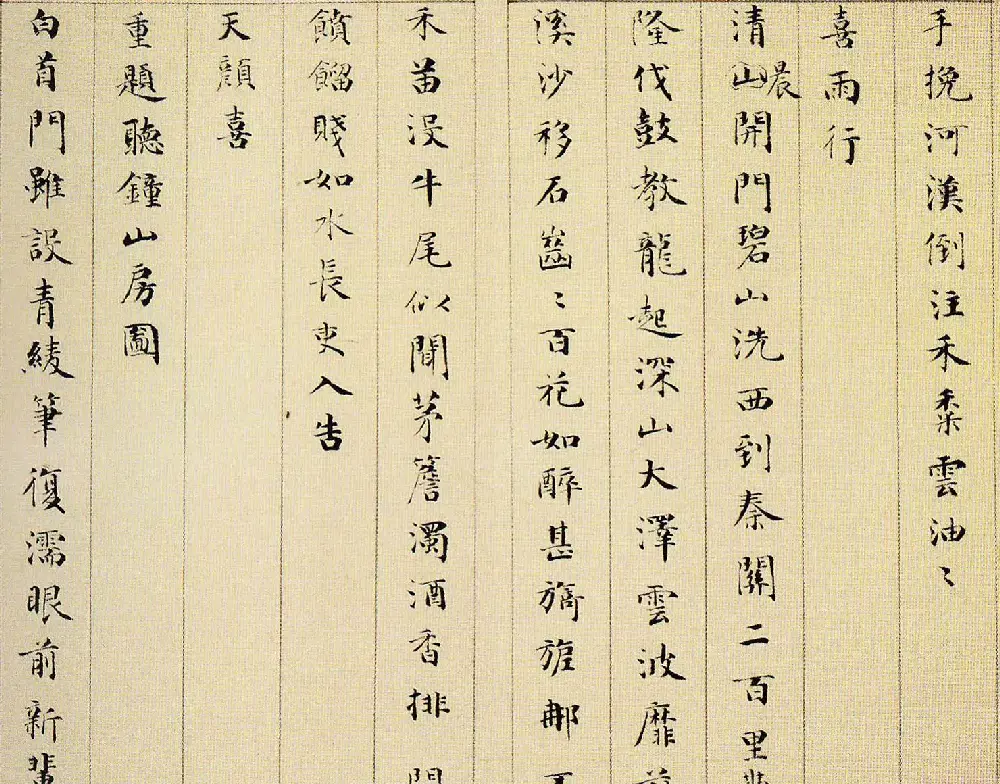 手挽河漢倒注禾黍雲油〻
喜雨行
清晨開門碧山洗西到秦關二百里
隆伐鼓教龍起深山大澤雲波靡
溪沙移石齒〻百花如醉甚旖旎那
禾苗沒牛尾似聞茅簷濁酒香排
饙餾賤如水長吏入告
天顔喜
重題聽鐘山房圖
白首門雖設青綾筆復濡眼前新輩